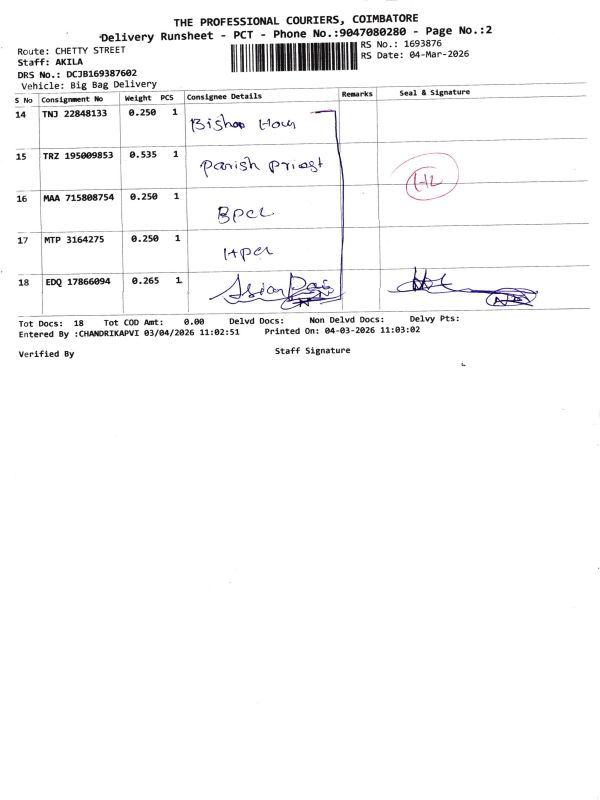 THE PROFESSIONAL COURIERS, COIMBATORE
Delivery Runsheet - PCT - Phone No.:9047080280 - Page No.:2
Route: CHETTY STREET
RS No.: 1693876
Staff: AKILA
RS Date: 04-Mar-2026
DRS No.: DCJB169387602
Vehicle: Big Bag Delivery
S No Consignment No Weight PCS Consignee Details Remarks Seal & Signature
14 TNJ 22848133 0.250 1 Bishop
15 TRZ 195009853 0.535 1 Parish Priest
16 MAA 715808754 0.250 1 BPCL
17 MTP 3164275 0.250 1 HPCL
18 EDQ 17866094 0.265 1
Tot Docs: 18 Tot COD Amt: 0.00 Delvd Docs: Non Delvd Docs: Delvy Pts:
Entered By :CHANDRIKAPVI 03/04/2026 11:02:51 Printed On: 04-03-2026 11:03:02
Verified By Staff Signature